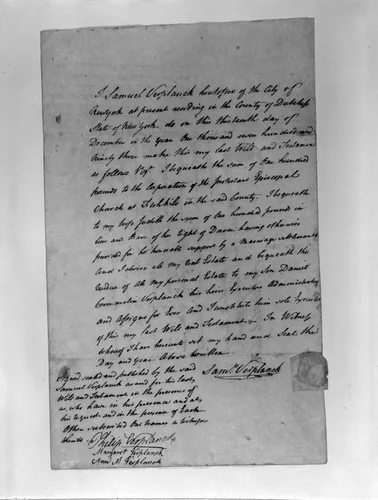 I Samuel Verplanck heretofore of the City of
New York at present residing in the County of Dutchess
State of New York do on this thirteenth day of
December in the year One thousand seven hundred and
Ninety three make this my last Will and Testament
as follows I bequeath the sum of One hundred
pounds to the Corporation of the Protestant Episcopal
Church at Fishkile in the said County. I bequeath
to my wife Judith the sum of One hundred pounds in
lieu and Barr of her right of Dower having otherwise
provided for her honorable support by a Marriage settlement
And I devise all my real Estate and bequeath the
residue of all my personal Estate to my Son Daniel
Crommelin Verplanck his heirs Executors Administrators
and Assigns for Ever And I constitute him sole Executor
of this my last Will and Testament. In Witness
whereof I have hereunto set my hand and Seal the
Day and Year Above written
Saml. Verplanck
Signed sealed and published by the said
Samuel Verplanck as and for his last
Will and Testament in the presence of
us, who have in his presence and at
his request and in the presence of Each
Other subscribed Our Names as Witnesses
thereto
Philip Verplanck
Margaret Verplanck
Ann M. Verplanck